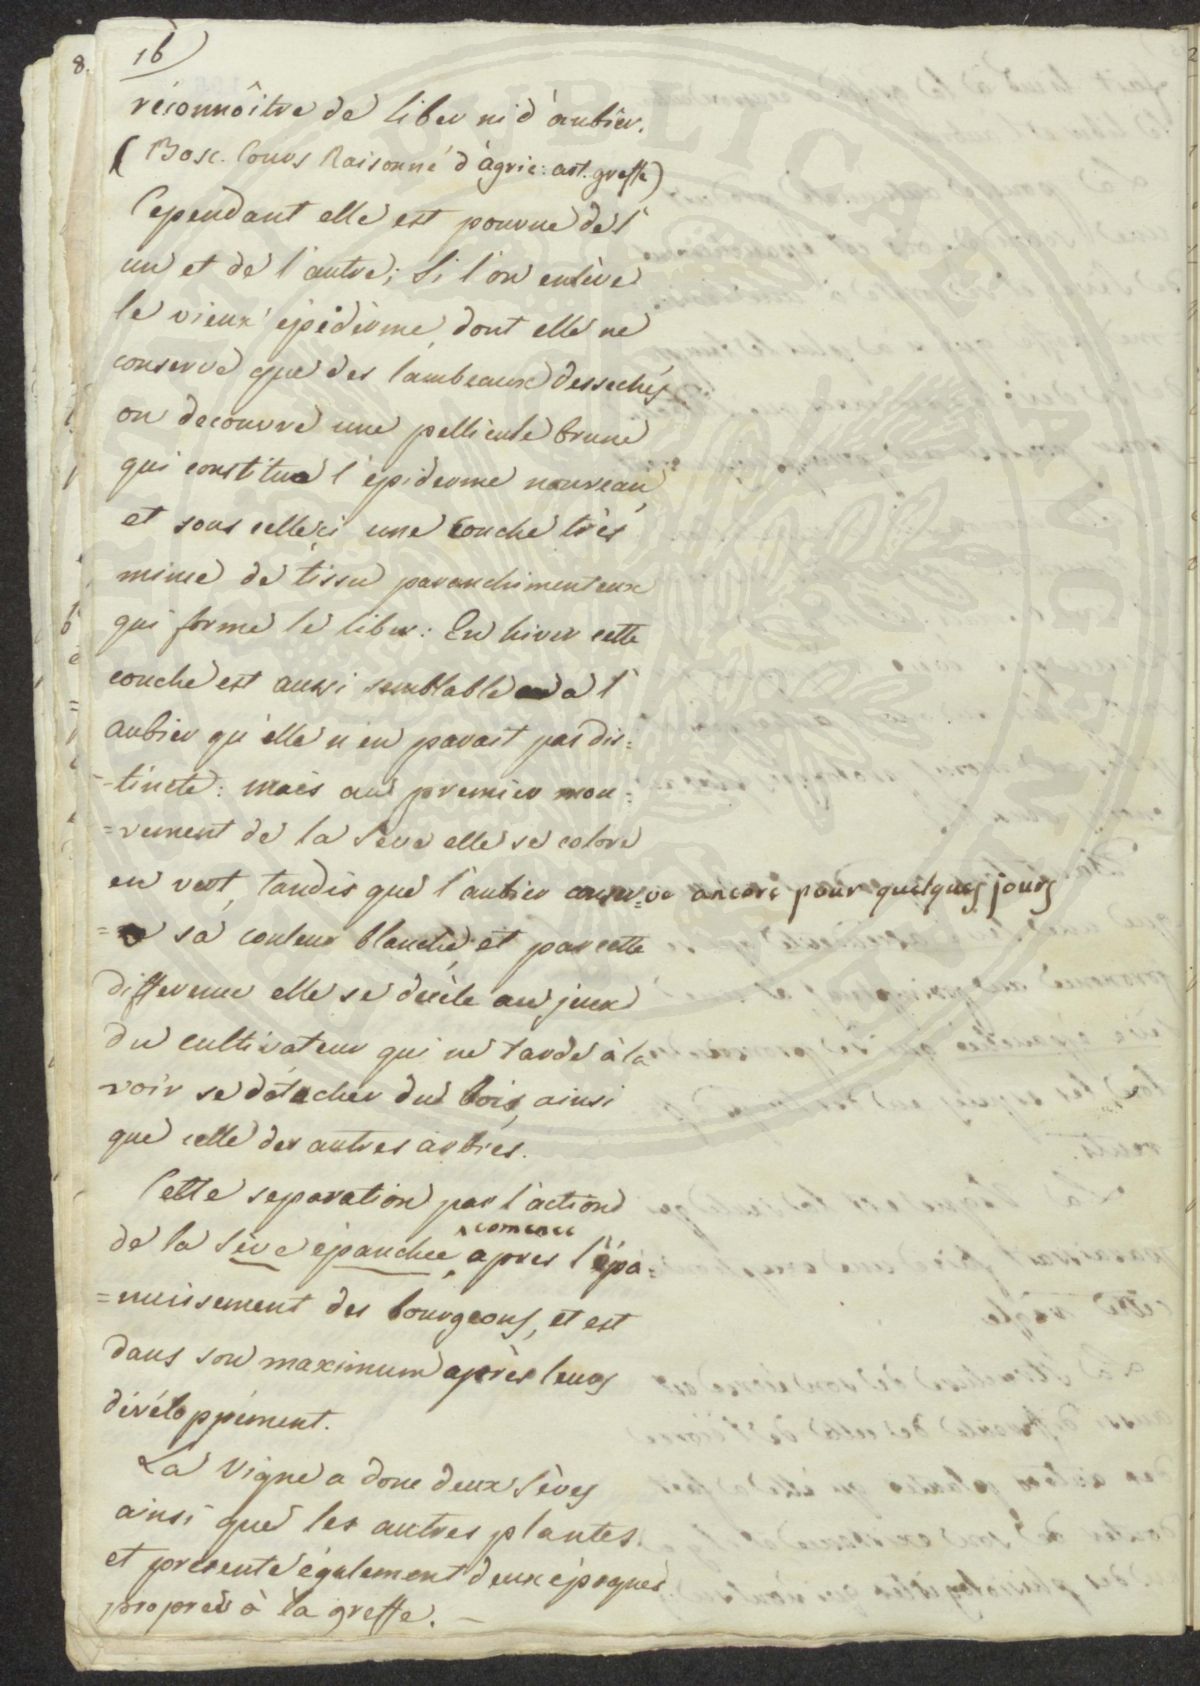 16)
réconnôitre de liber ni d'aubier.
(Bosc. Cours Raisonné d'agric: art. greffe)
Cependant elle est pourvue de l'
un et de l'autre; Si l'on enlève
le vieux épiderme, dont elle ne
conserve que des lambeaux dessechés
on decouvre une pellicule brune
qui constitue l'épiderme nouveau,
et sous celle ci une couche très
mince de tissu paranchimenteux
qui forme le liber: En hiver cette
couche est aussi semblable a l'
aubier qu'elle n'en parait pas dis=
-tincte: mais au premier mou=
=vement de la seve elle se colore
en vert, tandis que l'aubier conser=ve ancore pour quelques jours
= sa couleur blanche, et par cette
difference elle se décile au jeux
du cultivateur qui ne tarde à la
voir se détacher du bois, ainsi
que celle des autres arbres.
Cette separation par l'action
comence
de la sève épanchee, apres l'épa=
=nuisement des bourgeons, et est
dans son maximum après leurs
développément.
La Vigne a donc deux sèves
ainsi que les autres plantes
et presente également deux époques
propres à la greffe. —